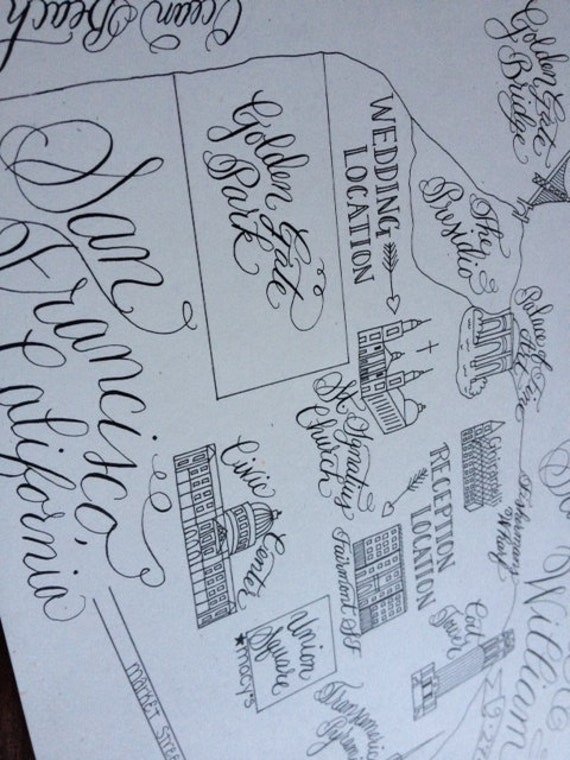 Golden Gate
Bridge
The
Presidio
Palace of Fine
Art
Ghirardelli
Fishermans
Wharf
William
Coit
Tower
WEDDING
LOCATION
St. Ignatius
Church
RECEPTION
LOCATION
Fairmont SF
Transamerica
Ocean Beach
Golden Gate
Park
Civic
Center
Union
Square
macy's
San
Francisco,
California
MARKET STREE